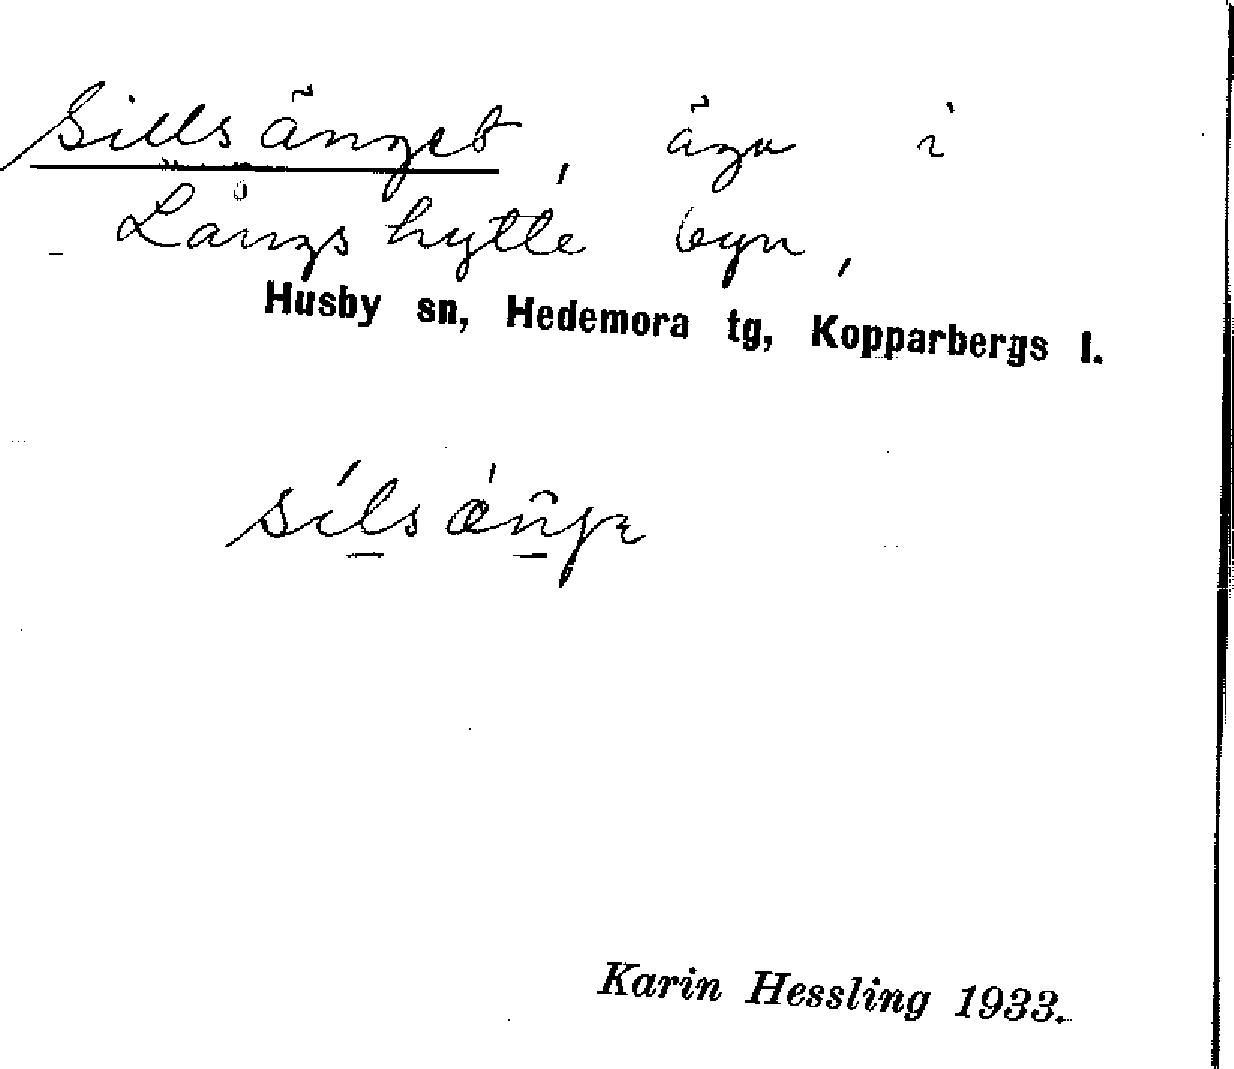 Sillsänget, ägn i
Långshytte byn,
Husby sn, Hedemora tg, Kopparbergs l.
sílsǽn̂ge
Karin Hessling 1933.